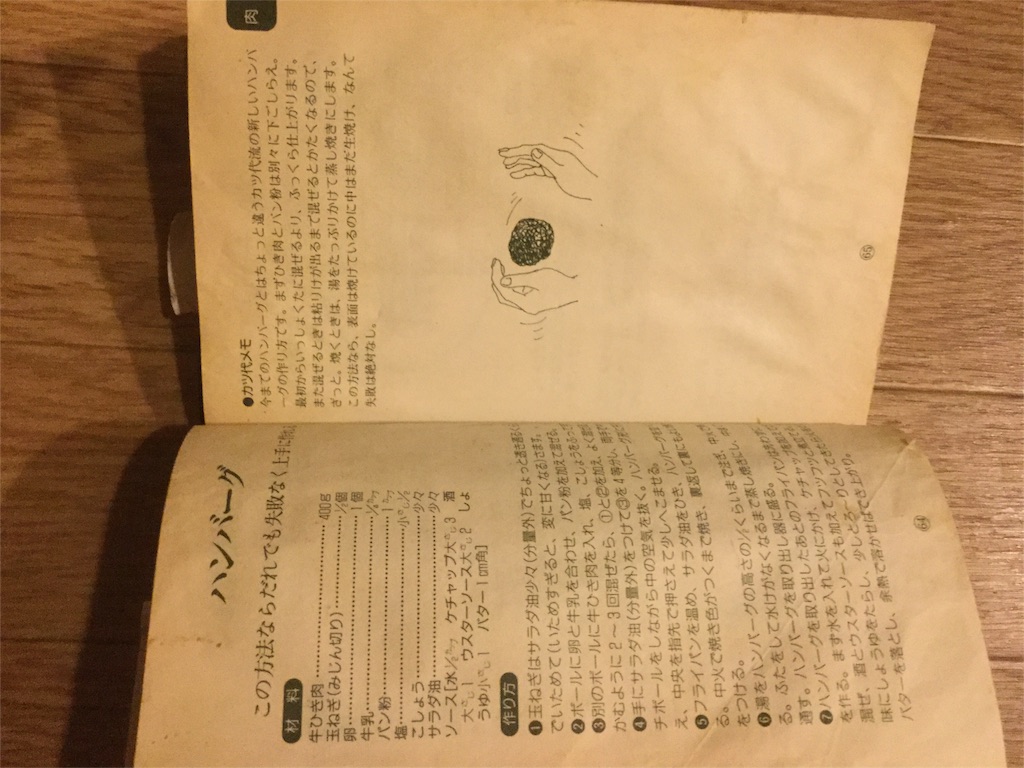 ハンバーグ
この方法ならだれでも失敗なく上手に作れ
材料
牛ひき肉……………400g
玉ねぎ(みじん切り)……………½個
卵……………1個
牛乳……………½カップ
パン粉……………1カップ
塩……………小さじ½
こしょう……………少々
サラダ油……………少々
ソース[水½カップ ケチャップ大さじ3 酒
大さじ1 ウスターソース大さじ2 しょ
うゆ小さじ1 バター1cm角]
作り方
❶玉ねぎはサラダ油少々(分量外)でちょっと透き通るく
ていためて(いためすぎると、変に甘くなる)さます。
❷ボールに卵と牛乳を合わせ、パン粉を加えて混ぜる。
❸別のボールに牛ひき肉を入れ、塩、こしょうをふって
かむように2〜3回混ぜたら、①と②を加え、よく混ぜ
❹手にサラダ油(分量外)をつけて③を4等分し、両手で
チボールをしながら中の空気を抜く。ハンバーグ形
え、中央を指先で押さえて少しへこませる。
❺フライパンを温め、サラダ油をひき、ハンバーグを
る。中火で焼き色がつくまで焼き、裏返して裏にも
をつける。
❻湯をハンバーグの高さの⅓くらいまで注ぎ、中火
る。ふたをして水けがなくなるまで蒸し焼きにし、
通す。ハンバーグを取り出し器に盛る。
❼ハンバーグを取り出したあとのフライパンは
を作る。まず水を入れて火にかけ、ケチャップを加えて
混ぜ、酒とウスターソースも加えてフツフツとしてきたら
味にしょうゆをたらし、少しとろーりとしてき
バターを落とし、余熱で溶かせばでき上がり。
64
肉
●カツ代メモ
今までのハンバーグとはちょっと違うカツ代流の新しいハンバ
ーグの作り方です。まずひき肉とパン粉は別々に下ごしらえ。
最初からいっしょくたに混ぜるより、ふっくら仕上がります。
また混ぜるときは粘りけが出るまで混ぜるとかたくなるので、
ざっと。焼くときは、湯をたっぷりかけて蒸し焼きにします。
この方法なら、表面は焼けているのに中はまだ生焼け、なんて
失敗は絶対なし。
65